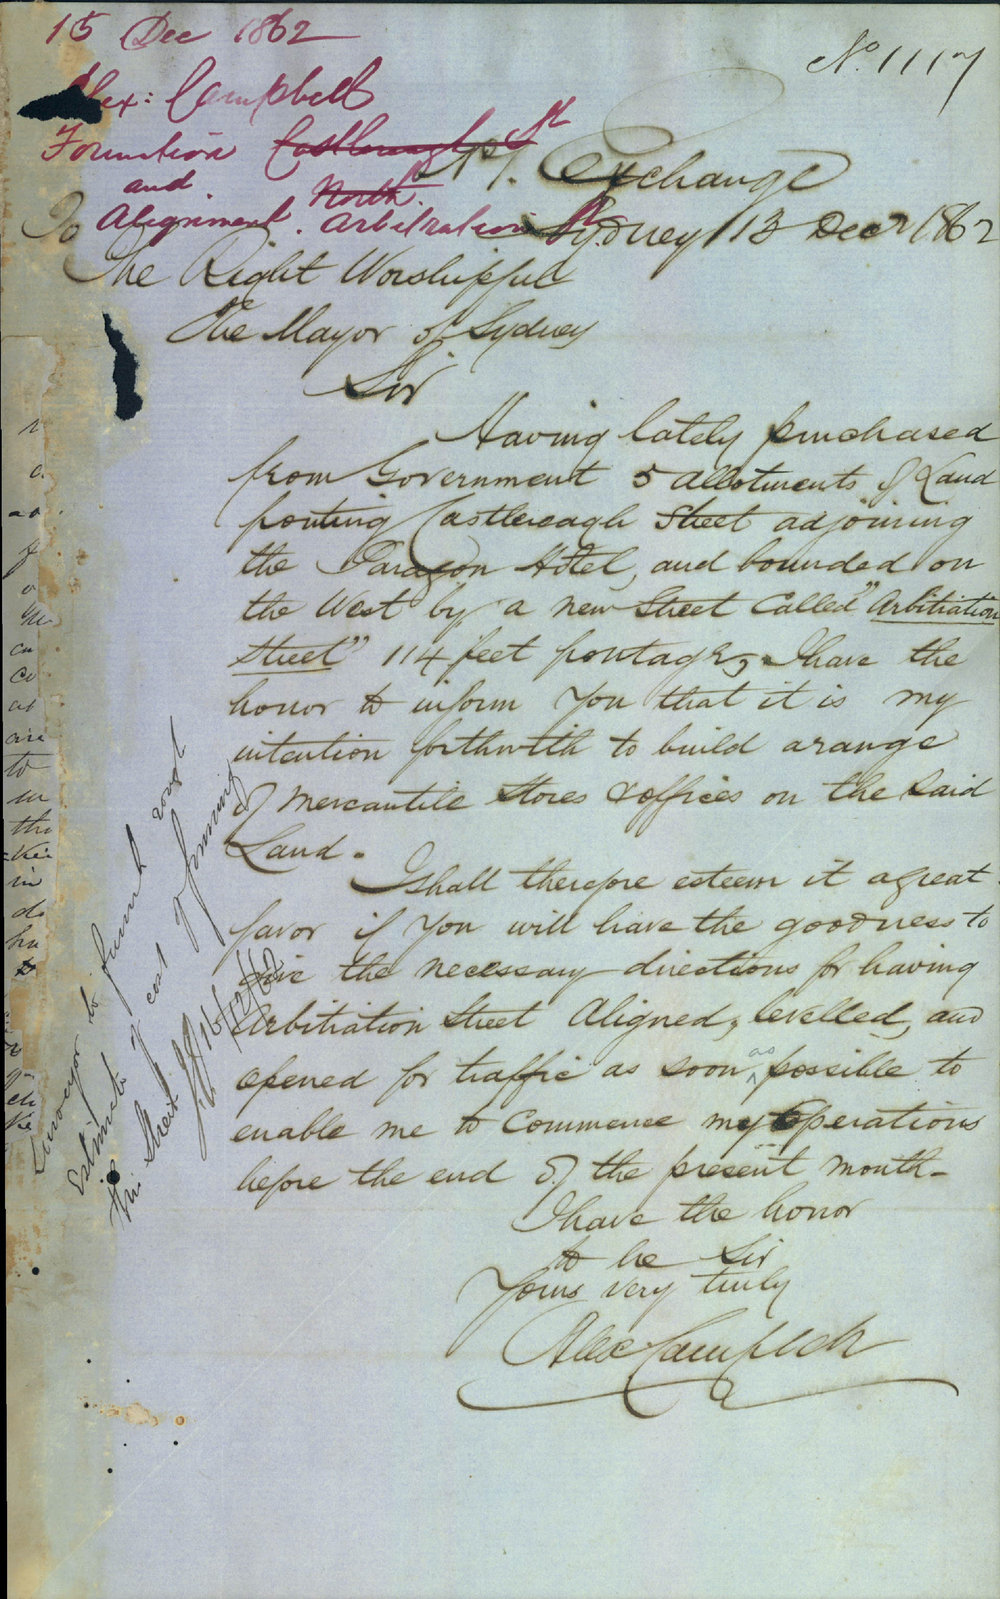 15 Dec 1862
No. 1117
Alex: Campbell
Formation Castlereagh St
and North.
Alignment. Arbitration St
Exchange
Sydney 13 Decr 1862
To
The Right Worshipful
The Mayor of Sydney
Sir
Having lately purchased
from Government 5 allotments of Land
fronting Castlereagh Street adjoining
the Paragon Hotel, and bounded on
the West by a new Street Called "Arbitration
Street" 114 feet frontage, I have the
honor to inform You that it is my
intention forthwith to build a range
of Mercantile Stores & offices on the Said
Land.
I shall therefore esteem it a great
favor if You will have the goodness to
give the necessary directions for having
Arbitration Street Aligned, levelled, and
opened for traffic as soon as possible to
enable me to Commence my Operations
before the end of the present month-
I have the honor
to be Sir
Yours very truly
Alex Campbell
Surveyor to furnish
Estimate of cost of forming
this Street
16/12/62